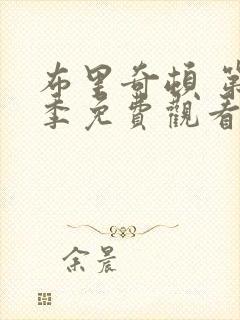 布里奇頓 第
季免費觀看
余晨